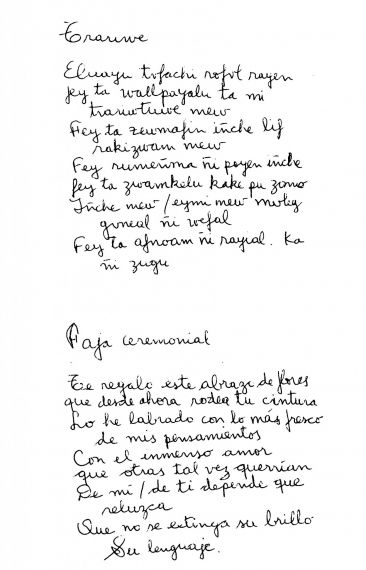 Trarüwe
Eluayu tvfachi rofvl rayen
fey ta wallpayalu ta mi
trarutuwe mew
Fey ta zewmafin iñche lif
rakizwam mew
Fey rumeñma ñi poyen iñche
fey ta zwamkelu kake pu zomo
Iñche mew / eymi mew mvleg
gvneal ñi wefal
Fey ta afnoam ñi rayial. Ka
ñi zugu
Faja ceremonial
Te regalo este abrazo de flores
que desde ahora rodea tu cintura
Lo he labrado con lo más fresco
de mis pensamientos
Con el inmenso amor
que otras tal vez querrían
De mí / de ti depende que
reluzca
Que no se extinga su brillo
Su lenguaje.